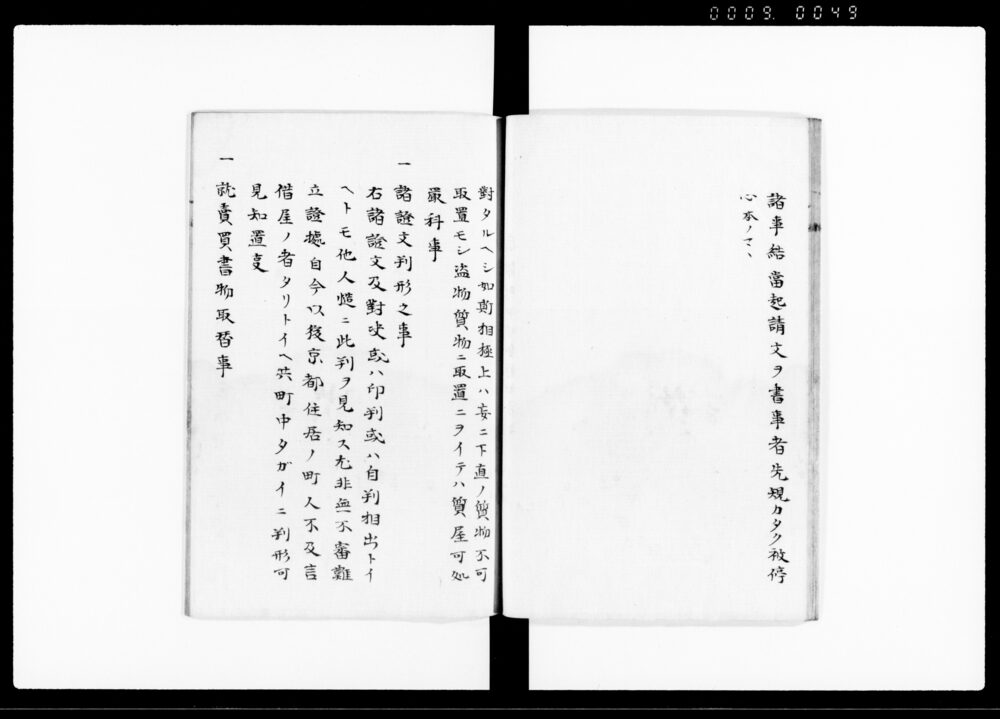 0009. 0049
諸事結當起請文ヲ書事者先規カタク被停
心本ノマヽ
對タルヘシ如斯相極上ハ妄ニ下直ノ質物不可
取置モシ盗物質物ニ取置ニヲイテハ質屋可処
嚴科事
一 諸證文判形之事
右諸證文及對决或ハ印判或ハ自判相出トイ
ヘトモ他人慥ニ此判ヲ見知ス尤非無不審難
立證據自今以後京都住居ノ町人不及言
借屋ノ者タリトイヘ共町中タガイニ判形可
見知置叓
一 就賣買書物取替事